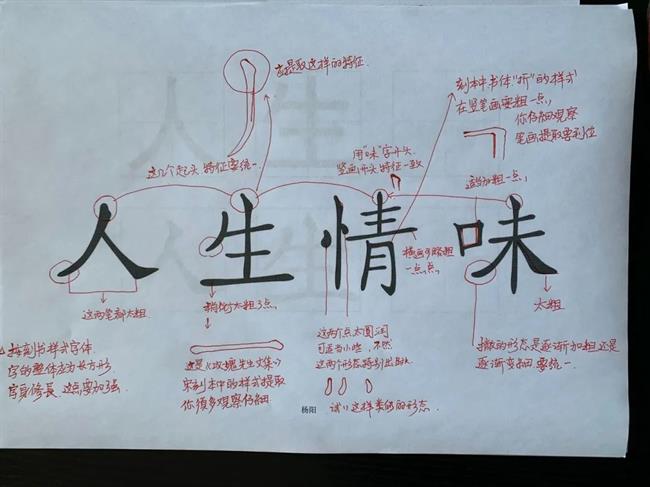 要提取这样的特征.
刻本中书体"折"的样式
在竖笔画要粗一点,
你仔细观察
笔画提取要到位
用"味"字开头.
竖画开头特征一致
这几个起头特征要统一
适当加粗一点,
人生情味
横画可略粗
一点点,
这两笔都太粗
稍微太粗了点,
这两个点太圆润
可适当小些,不然
这两个形态特别出跳
太粗
撇的形态是逐渐加粗还是
逐渐变细要统一.
按刻书样式字体
字的整体应为长方形
字身修长.这点要加强.
这是《攻媿先生文集》
宋刻本中的样式提取
你须多观察仔细.
试试这样类似的形态.
杨阳